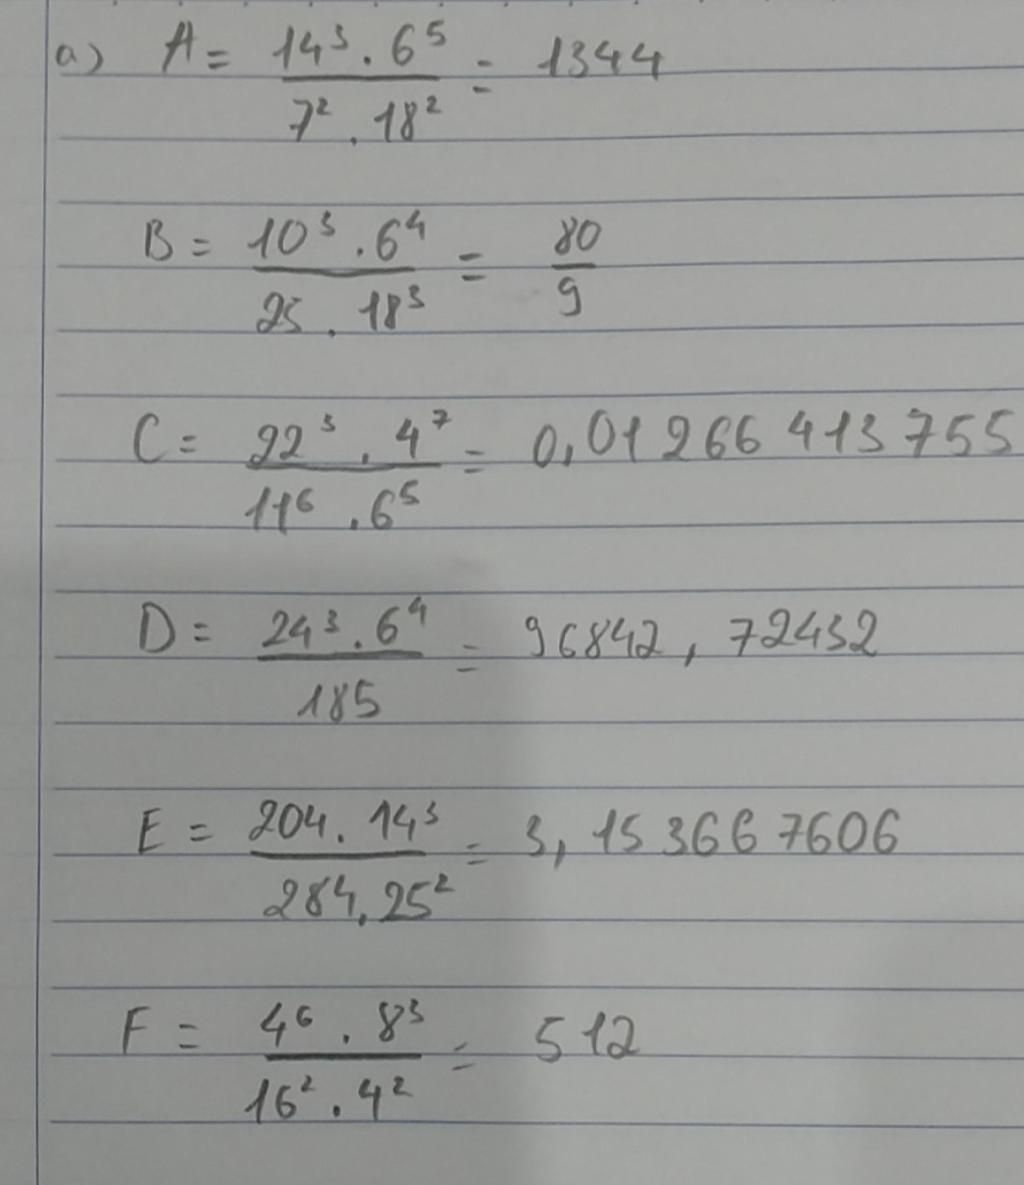 a) A = 14³ . 6⁵ / 7² . 18² = 1344
B = 10³ . 6⁴ / 25 . 18³ = 80 / 9
C = 22³ . 4⁷ / 11⁶ . 6⁵ = 0,01266413755
D = 24³ . 6⁴ / 185 = 96842,72432
E = 204 . 14³ / 284 . 25² = 3,153667606
F = 4⁶ . 8³ / 16² . 4² = 512